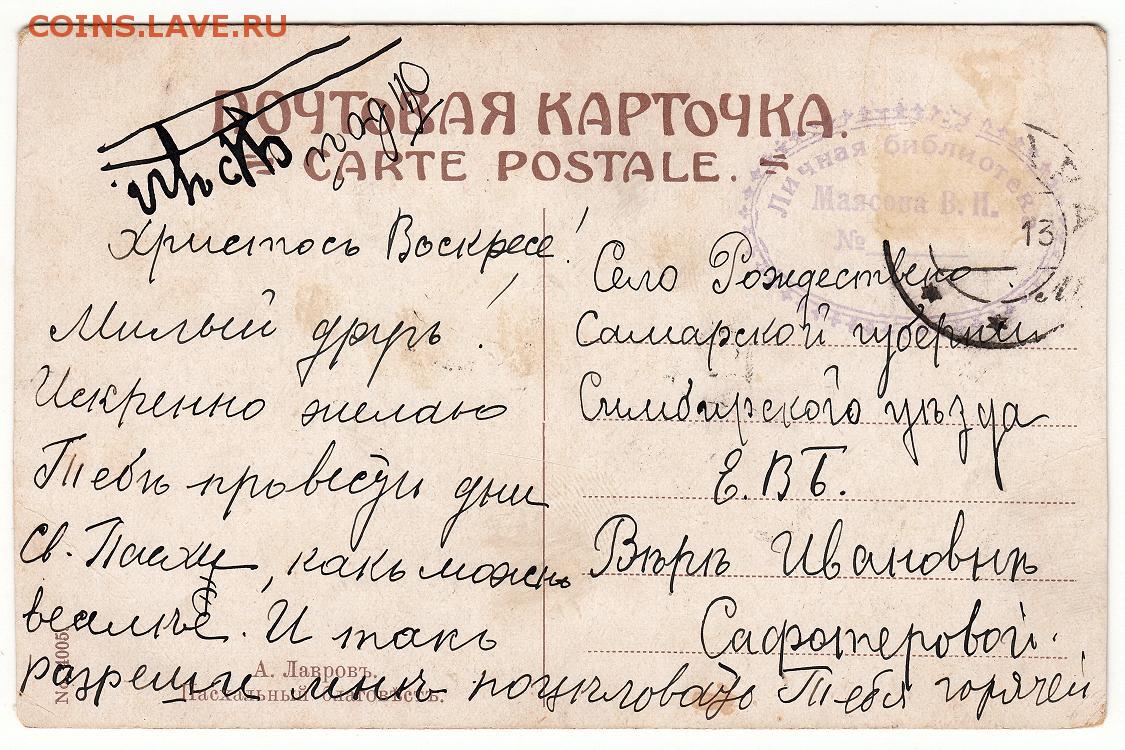 COINS.LAVE.RU
ПОЧТОВАЯ КАРТОЧКА.
CARTE POSTALE.
Личная библиотека
Маясова В. И.
№
13
Христосъ Воскресе!
Милый другъ!
Искренно желаю
Тебѣ провести дни
Св. Пасхи, какъ можно
веалѣе. И такъ
разреши мнѣ поцѣловать Тебя горячей
Село Рождествено
Самарской губернии
Симбирского уѣзда
Е. В Б.
Вѣрѣ Ивановнѣ
Сафотеровой.
А. Лавровъ.
Пасхальный благовѣстъ.